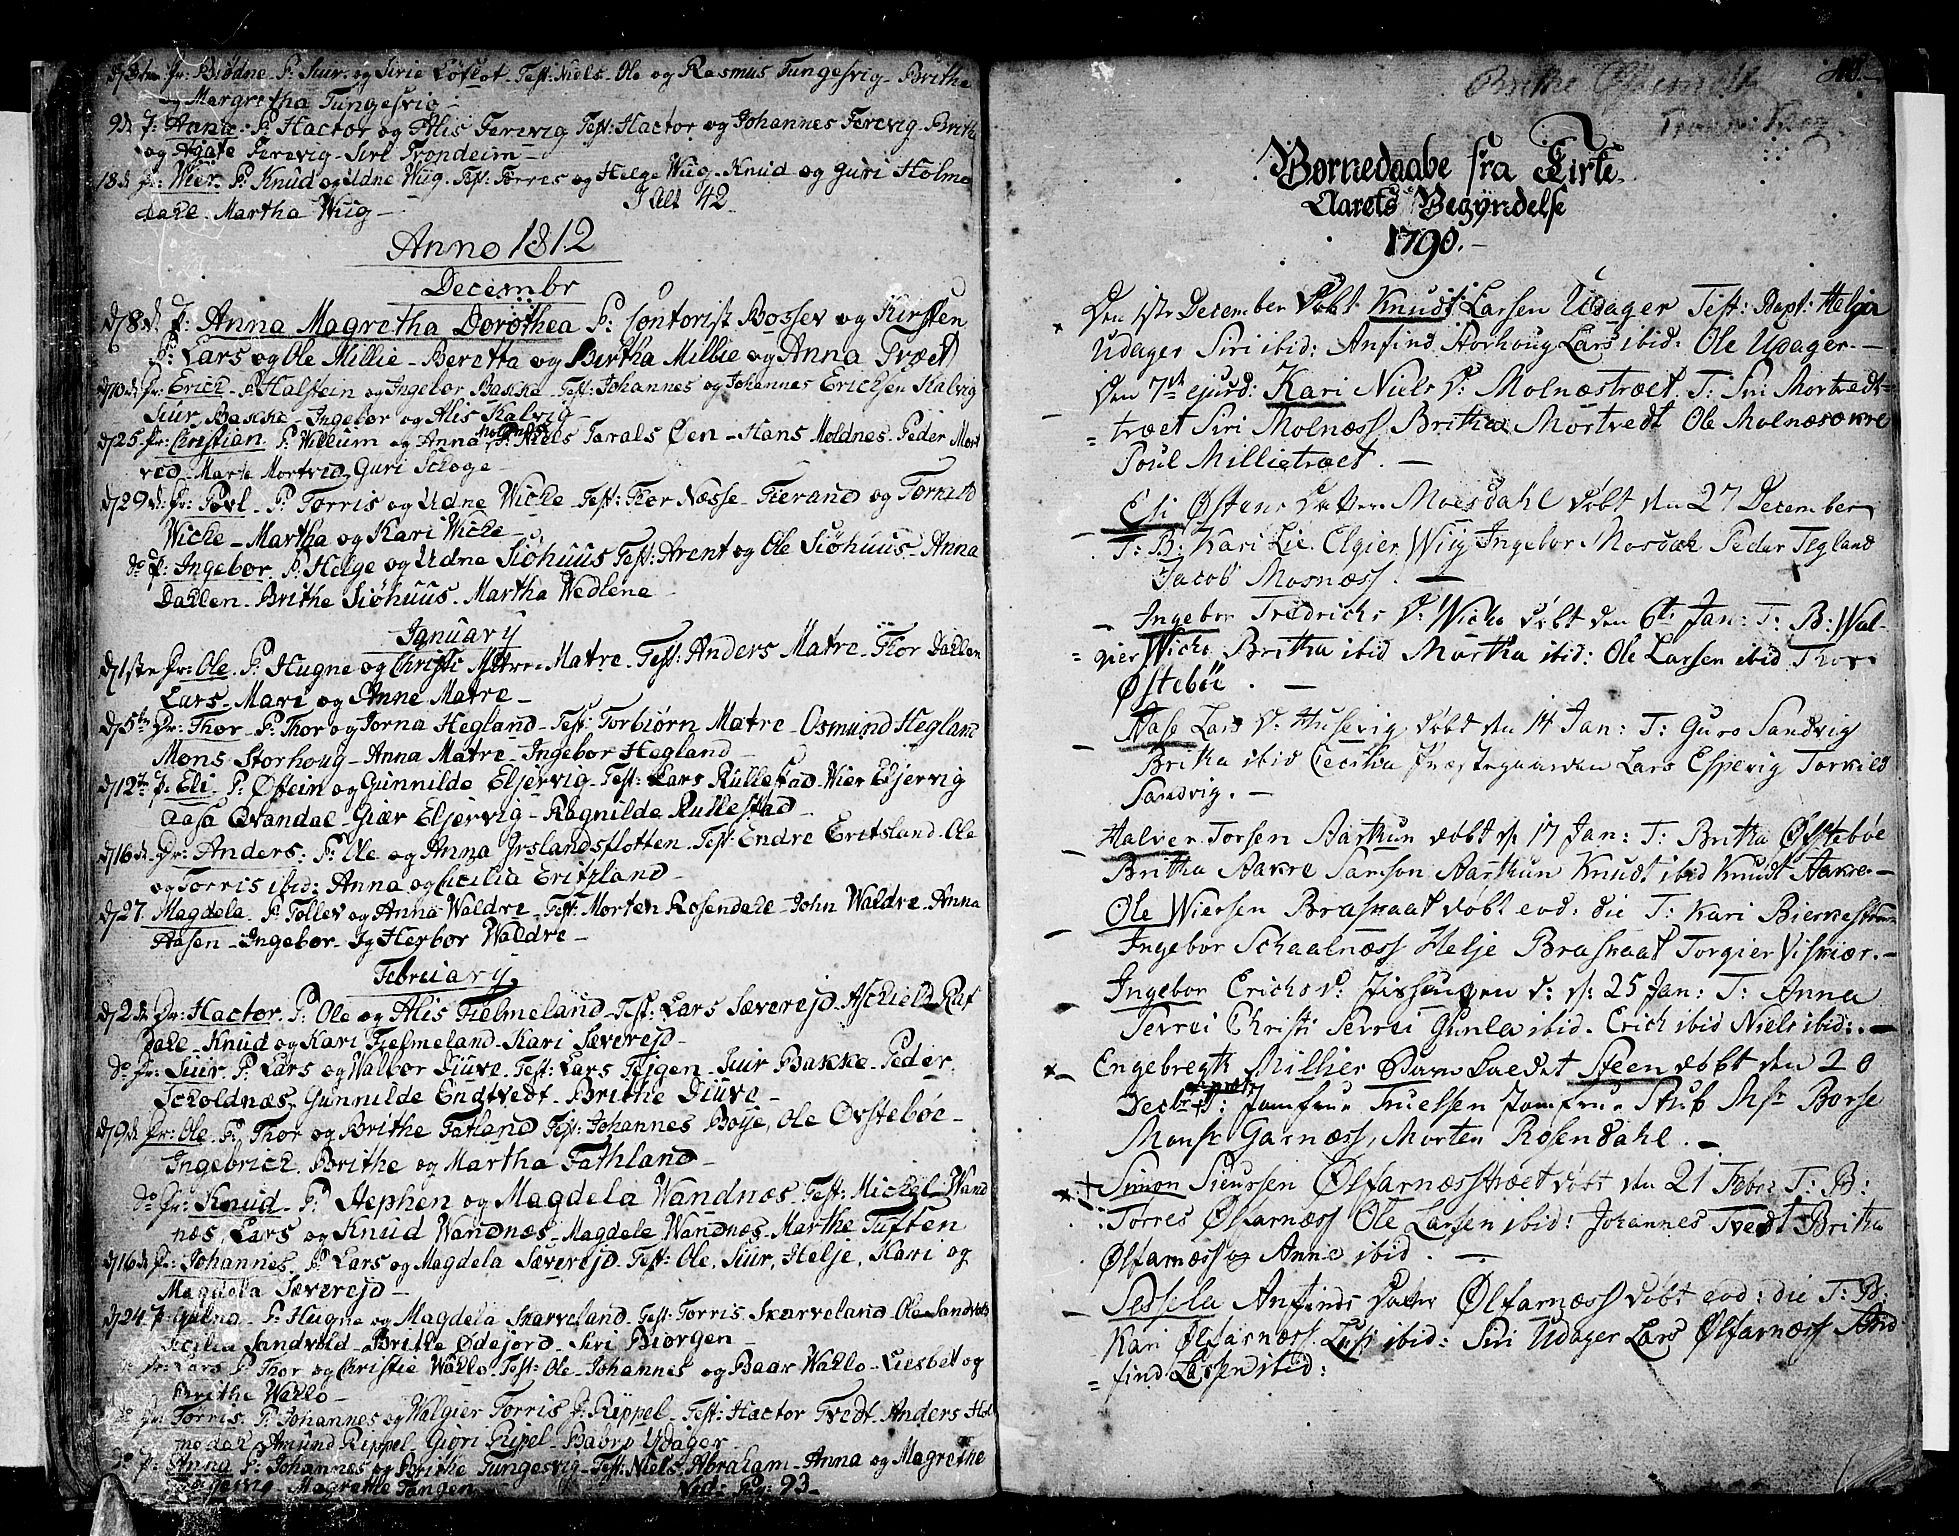 Pr: Biødne. P: Siur. og Sirie Løflot. Test: Niels. Ole og Rasmus Tungesvig. Brithe
og Margretha Tungesvig
9d. P: Anne. P: Hactor og Alis Ferevig Test: Hactor og Johannes Ferevig. Brith
og Agate Ferevig. Sirl Trondeim
18d. Pr: Wier. P: Knud og Udne Wiig. Test: Torres og Helge Wiig. Knud og Guri Holme
dahl. Martha Wiig
I Alt 42
Anno 1812
Decembr
d 8d. P: Anna Magretha Dorothea P: Contorist Bossev og Kirsten
P: Lars og Ole Millie. Beretta og Birtha Millie og Anna Træet
d 10d. Pr: Erich. P: Halstein og Ingebor Bakke. Test: Johannes og Johannes Erichsen Kalvig
Siur Bakke. Ingebor og Alis Kalvig
d 25 Pr: Christian. P: Willum og Anna Niels Tarals Øen. Hans Moldnes. Peder Mort
ved. Mari Mortvid. Guri Schoge
d 29d: Pr: Povl. P: Torris og Udne Wicke. Test: Thor Næsse. Tierand og Tornild
Wicke. Martha og Kari Wicke
do P: Ingebor. P: Helge og Udne Siøhuus Test: Arent og Ole Siøhuus. Anna
Dahlen. Brithe Siøhuus. Martha Wedlene
January
d 1ste Pr: Ole. P: Hugne og Christi Matre. Test: Anders Matre. Thor Dahlen
Lars. Mari og Anne Matre
d 5te Pr: Thor. P: Thor og Jorna Hegland. Test: Torbiørn Matre. Osmund Hegland
Mons Storhoug. Anna Matre. Ingebor Hegland
d 12t. P: Eli. P: Østein og Gunnilde Eljervig. Test: Lars Rullestad. Wier Eljervig
Aasa Qvandal. Giær Eljervig. Ragnilde Rullestad
d 16d. Pr: Anders. P: Ole og Anna Erslandsflotten. Test: Endre Eritsland. Ole
og Torris ibid: Anna og Cicilia Eritzland
d 27. Magdela. P: Tollev og Anna Waldre. Test: Morten Rosendale. John Waldre. Anna
Aasen. Ingebor. Ig Herbor Waldre
February
d 2d. Pr: Hactor. P: Ole og Alis Fielmeland. Test: Lars Sæverejd. Aschield Raf
dahl. Knud og Kari Fielmeland. Kari Sæverejd
do Pr: Siur. P: Lars og Walbor Diuve. Test: Lars Siur Bakke. Peder
Scholdnæs. Gunnilde Endtvedt. Brithe Diuve
d 9d. Pr: Ole. P: Thor og Brithe Fatland Test: Johannes Boye, Ole Øvstebøe
Ingebrich. Brithe og Martha Fathland
do Pr: Knud. P: Stephen og Magdela Wandnæs. Test: Michel Wand
næs. Lars og Knud Wandnæs. Magdele Wandnæs. Marthe Tuften
d 16d. Pr: Johannes. P: Lars og Magdela Sæverejd. Test: Ole, Siur, Helje, Kari og
Magdela Sæverejd
d 24. P: P: Hugne og Magdela Skarveland. Test: Torris Skarveland. Ole Sandvold
Cicilia Sandvold. Brithe Ødejord. Siri Biørgen
Pr: Lars P: Thor og Christie Wahlo. Test: Ole. Johannes og Baar Wahlo. Liesbet og
Brithe Wahlo
do Pr: Torris. P: Johannes og Walgier Torris Rippel. Test: Hactor Tvedt. Anders Hol
medal. Amund Rippel. Giøri Ripel. Babro Udager
do P: Anna P: Johannes og Brithe Tungesvig. Test: Niels. Abraham. Anna og Magrethe
Magrethe Tangen
vid: Pg: 93

Brithe
Børnedaabe fra Kirke
Aarets Begyndelse
1790.
Den 1ste December Døbt Knudt Larsen Udager Test: Bapt: Helga
Udager Siri ibid: Anfind Storhoug Lars ibid: Ole Udager.
Den 7de ejusd: Kari Niels D: Molnæstræet. T: Siri Mortvedt=
=træet Siri Molnæss Britha Mortvedt Ole Molnæsakre
Poul Millietræet.
Eli Østens Datter Moesdahl døbt den 27 December
T: B: Kari Lie. Elgier Wiig Ingebor Mosdal Peder Tegland
Jacob Mosnæss.
Ingebor Fredrichs D: Wicke døbt den 6te Jan: T: B: Wal=
=gier Wicke Britha ibid Martha ibid: Ole Larsen ibid Thor
Østebøe
Aase Lars D: Husevig døbt den 14 Jan: T: Guro Sandvig
Britha ibid Cecilia Præstegaarden Lars Espevig Torkild
Sandvig.
Halver Torsen Aarthun døbt d. 17 Jan: T: Britha Østebøe
Britha Aakre Samson Aarthun Knudt ibid Knudt Aakre.
Ole Wiersen Braskaat døbt eod: die T: Kari
Ingebor Schaalnæss Helje Braskaat Torgier Viskiær.
Ingebor Erichs D: d: d: 25 Jan: T: Anna
Tevrei Christi Tevrei Gunla ibid. Erich ibid Niels ibid:
Engebregt Millier Barn kaldet Steen døbt den 20
Decbr. T: Jomfrue Truelsen Jomfrue Stub Msr Borse
Monsr Garnæss, Morten Rosendahl.
Simon Siurssen Ølfarnæsstræet døbt den 21 Febr: T: B:
Torres Ølfarnæss Ole Larsen ibid: Johannes Tvedt Britha
Ølfarnæss og Anne ibid.
Sessela Anfinds Datter Ølfarnæss døbt eod: die T: B:
Kari Ølfarnæss ibid: Siri Udager Lars Ølfarnæss And
=find Lassen ibid: